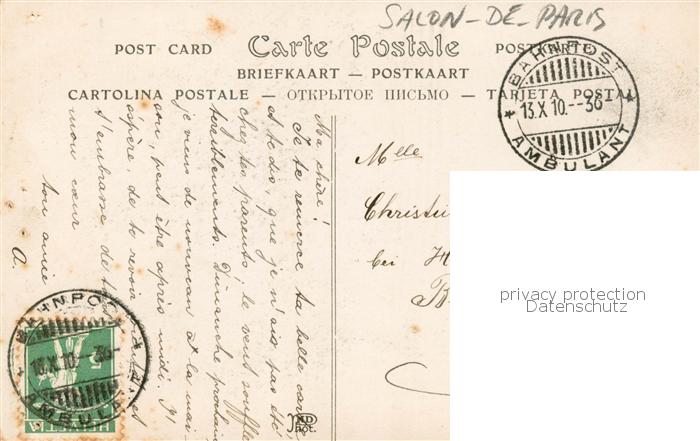 SALON-DE-PARIS
POST CARD Carte Postale POSTKARTE
BRIEFKAART — POSTKAART
CARTOLINA POSTALE — ОТКРЫТОЕ ПИСЬМО — TARJETA POSTAL
BAHNPOST
13.X.10.--36
AMBULANT
Ma chère!
Je te remercie ta belle carte,
et te dis, que je n'ai pas été
chez tes parents; le vent souffle
terriblement. Dimanche prochain
je viens de nouveau at la mai-
son, peut être après midi. 
espère, de te revoir
t'embrasse de
mon cœur
ton amie
A.
Mlle
Christi
bei H
B
privacy protection
Datenschutz
BAHNPOST
13.X.10.-36-
AMBULANT
ND
Phot.